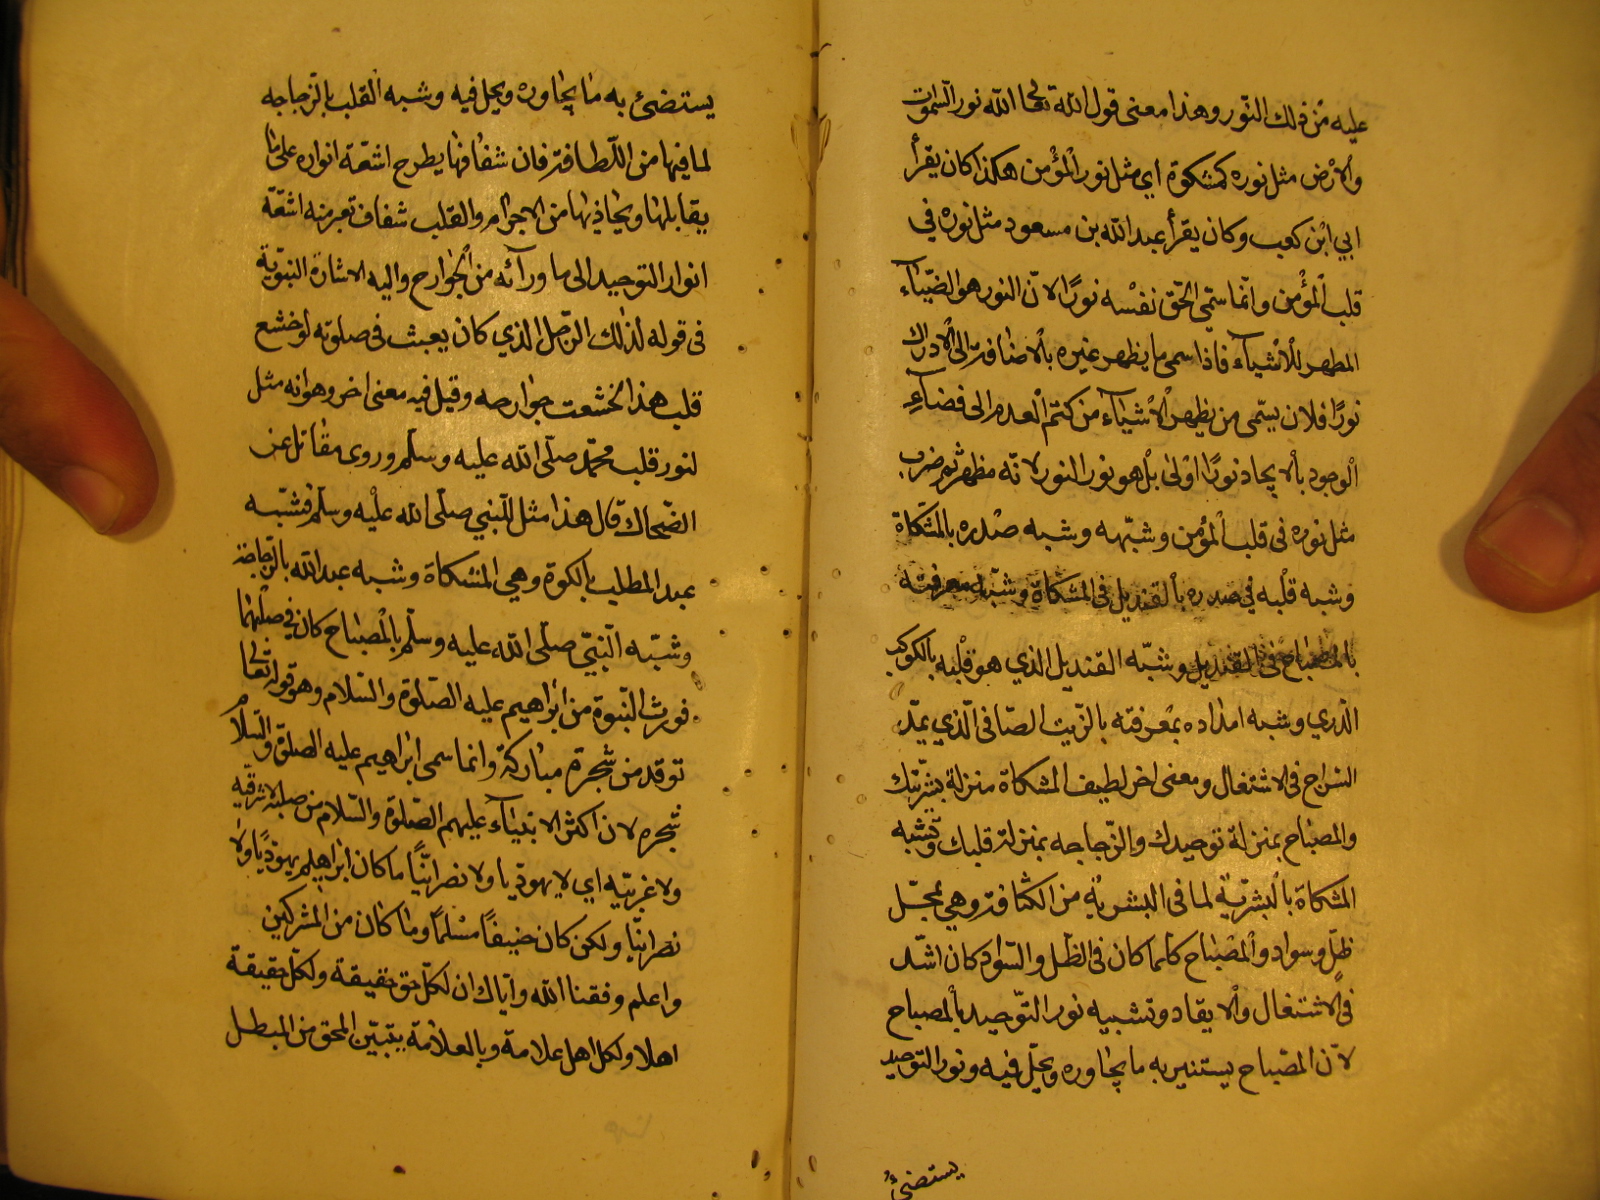 عليه من ذلك النور وهذا معنى قول الله تعالى الله نور السموات
والارض مثل نوره كمشكوة اي مثل نور المؤمن هكذا كان يقرأ
ابي ابن كعب وكان يقرأ عبد الله بن مسعود مثل نوره في
قلب المؤمن وانما سمى الحق نفسه نورًا لان النور هو الضياء
المظهر للاشياء فاذا سمى ما يظهر غيره بالاضافة الى الادراك
نورًا فلان يسمى من يظهر الاشياء من كتم العدم الى فضاء
الوجود بالايجاد نورًا اولى بل هو نور النور لانه مظهر ثم ضرب
مثل نوره في قلب المؤمن وشبهه وشبه صدره بالمشكاة
وشبه قلبه في صدره بالقنديل في المشكاة وشبه معرفته
بالمصباح في القنديل وشبه القنديل الذي هو قلبه بالكوكب
الدري وشبه امداده بمعرفته بالزيت الصافى الذي يمد
السراج فى الاشتعال ومعنى اخر لطيف المشكاة منزلة بشريتك
والمصباح بمنزلة توحيدك والزجاجه بمنزلة قلبك وتشبه
المشكاة بالبشرية لما فى البشرية من الكثافة وهي محل
ظل وسواد والمصباح كلما كان في الظل والسواد كان اشد
في الاشتعال والايقاد وتشبيه نور التوحيد بالمصباح
لان المصباح يستنير به ما يجاوره ويحل فيه ونور التوحيد
يستضئ
يستضئ به ما يجاوره ويحل فيه وشبه القلب بالزجاجه
لما فيها من اللطافة فان شفافها يطرح اشعة انواره على ما
يقابلها ويحاذيها من الاجرام والقلب شفاف تعبر منه اشعة
انوار التوحيد الى ما ورآئه من الجوارح واليه الاشارة النبوية
فى قوله لذلك الرجل الذي كان يعبث فى صلوته لو خشع
قلب هذا لخشعت جوارحه وقيل فيه معنى اخر وهو انه مثل
لنور قلب محمد صلى الله عليه وسلم وروى مقاتل عن
الضحاك قال هذا مثل للنبي صلى الله عليه وسلم فشبه
عبد المطلب بالكوة وهي المشكاة وشبه عبد الله بالزجاجة
وشبه النبي صلى الله عليه وسلم بالمصباح كان في صلبهما
فورث النبوة من ابراهيم عليه الصلوة والسلام وهو قوله تعالى
توقد من شجرة مباركة وانما سمى ابراهيم عليه الصلوة والسلام
شجره لان اكثر الانبياء عليهم الصلوة والسلام من صلبه لا شرقيه
ولا غربيه اي لا يهوديا ولا نصرانيًا ما كان ابراهيم يهوديًا ولا
نصرانيًا ولكن كان حنيفًا مسلمًا وما كان من المشركين
واعلم وفقنا الله واياك ان لكل حق حقيقة ولكل حقيقة
اهلا ولكل اهل علامة وبالعلامة يتبين المحق من المبطل